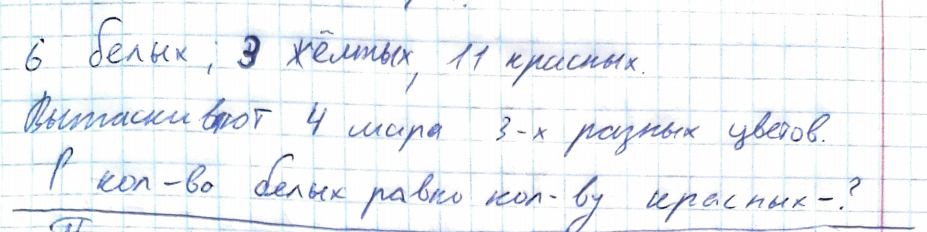 6 белых, 3 жёлтых, 11 красных.
Вытаскивают 4 шара 3-х разных цветов.
P кол-во белых равно кол-ву красных-?